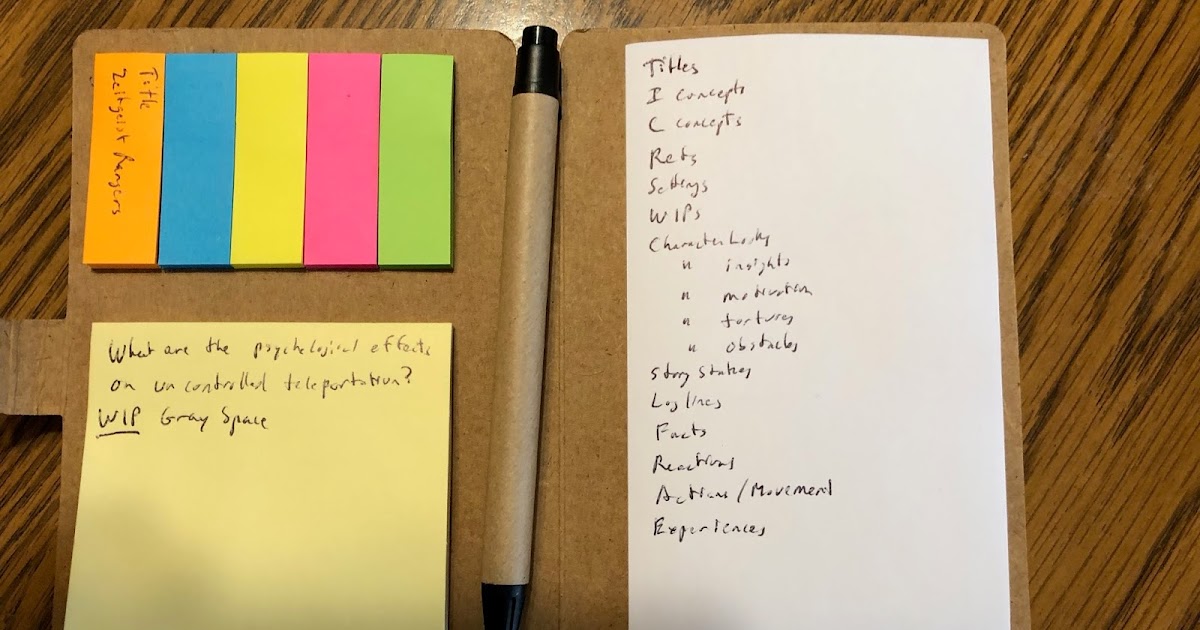 Title
Zeitgeist Rangers
What are the psychological effects
on uncontrolled teleportation?
WIP Gray Space
Titles
I concepts
C concepts
Refs
Settings
WIPs
Character Looks
" insights
" motivation
" tortures
" obstacles
Story States
Log lines
Facts
Reactions
Actions/Movement
Experiences